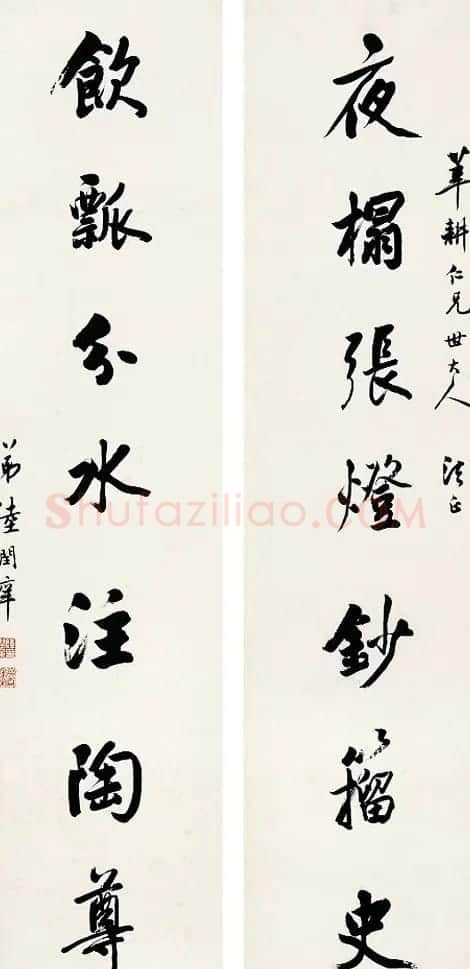 耕仁兄世大人 法正
夜榻張燈鈔籀史
飲瓢分水注陶尊
弟陸潤庠
Shufaziliao.COM